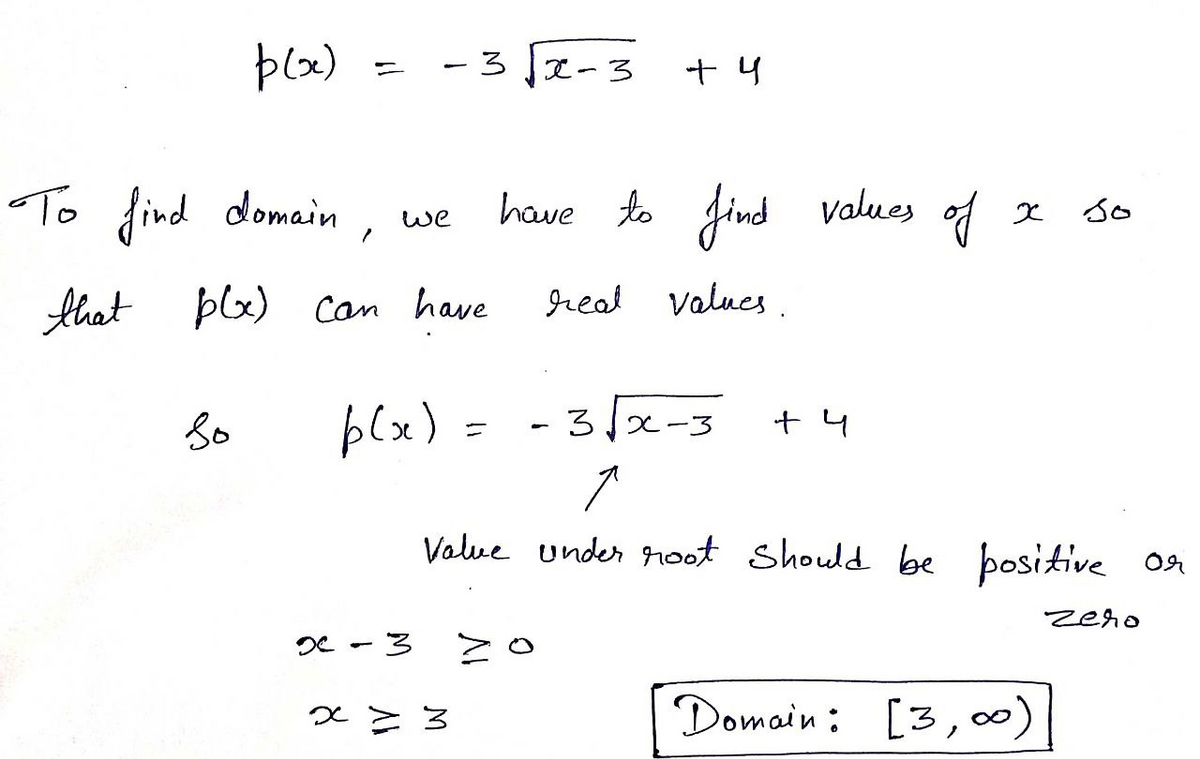 p(x) = -3√(x-3) + 4
To find domain, we have to find values of x so
that p(x) can have real values.
So p(x) = -3√(x-3) + 4
↑
Value under root should be positive or
zero
x - 3 ≥ 0
x ≥ 3
Domain: [3, ∞)